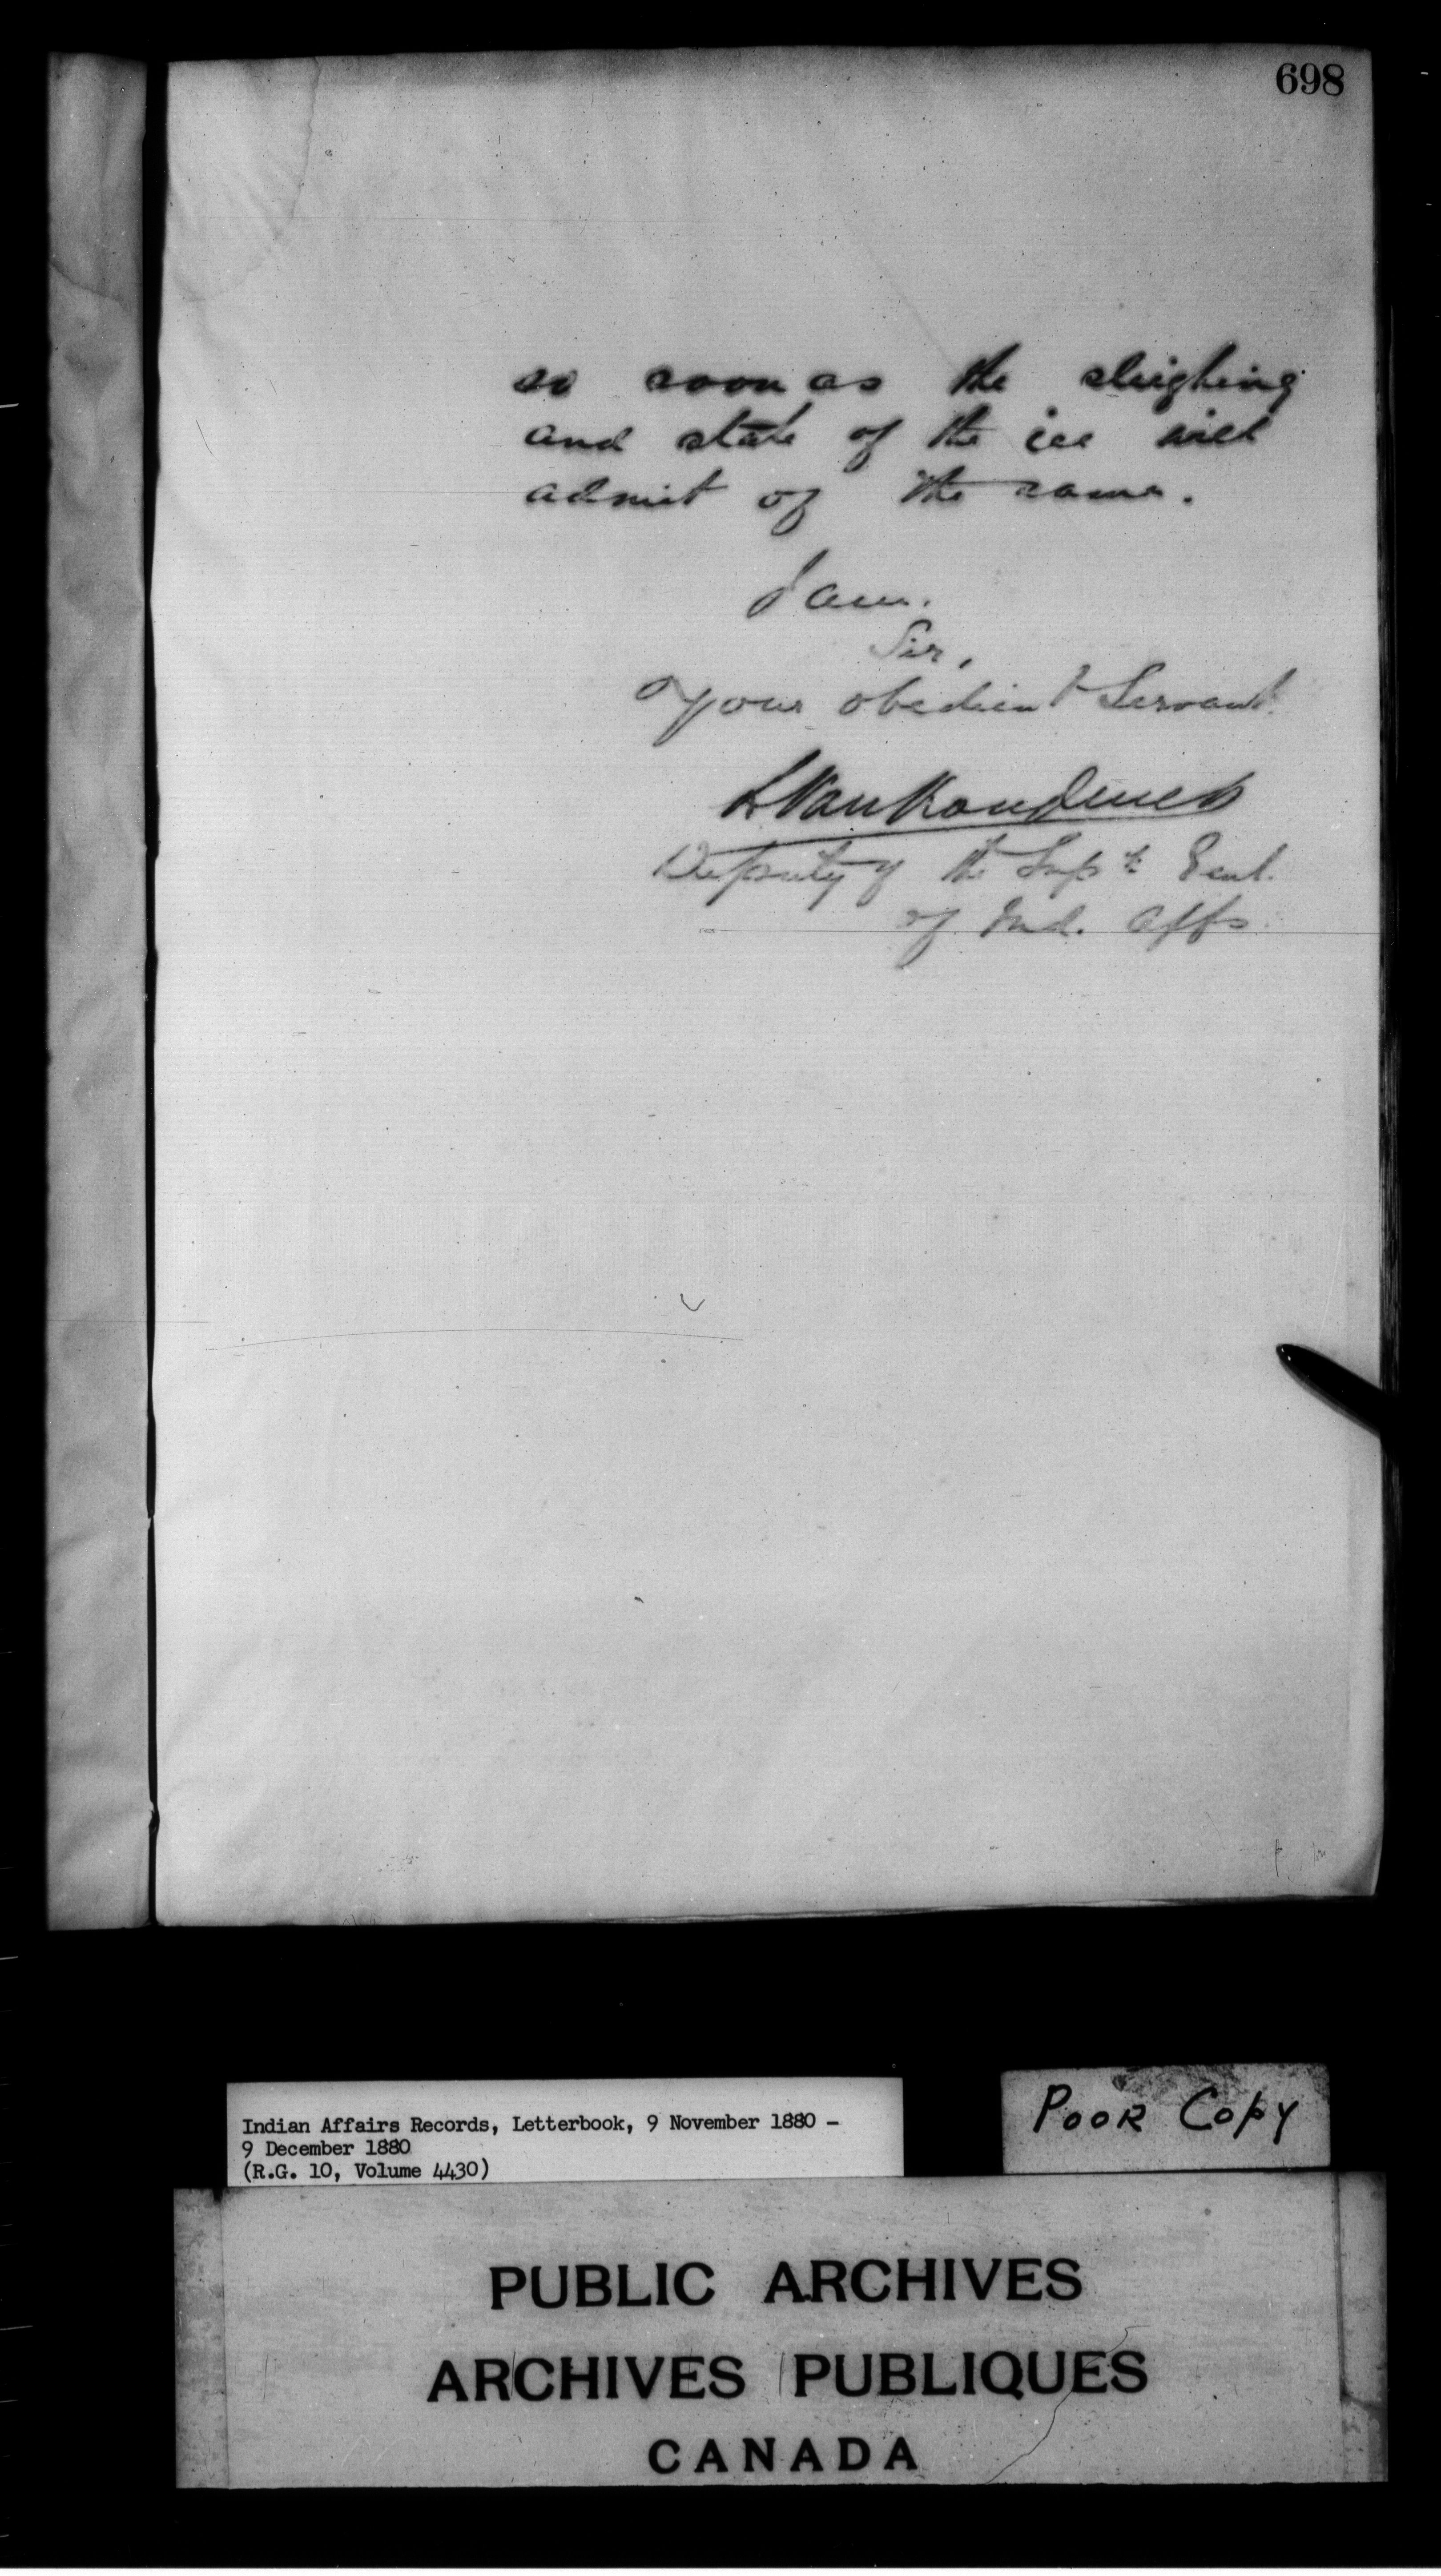 698
so soon as the sleighing
and state of the ice will
admit of the same.
I am.
Sir,
Your obedient Servant.
L Vankoughnet
Deputy of the Supt. Genl.
of Ind. Affs
Indian Affairs Records, Letterbook, 9 November 1880 -
9 December 1880
(R.G. 10, Volume 4430)
POOR COPY
PUBLIC ARCHIVES
ARCHIVES PUBLIQUES
CANADA